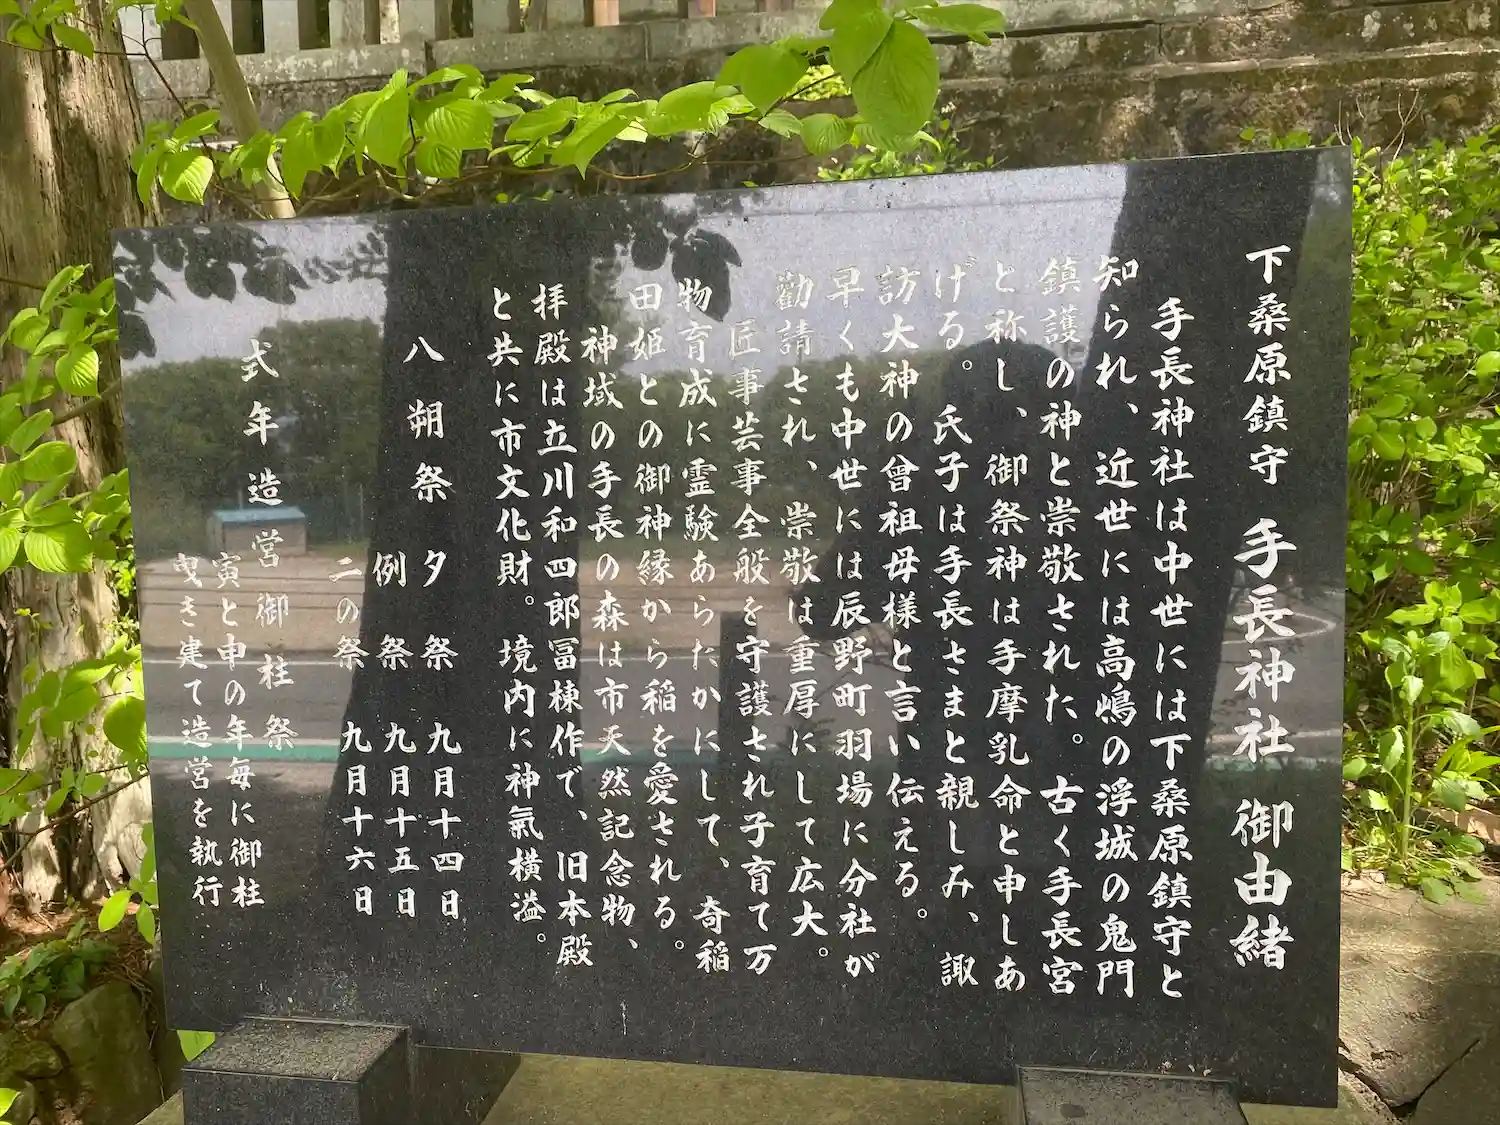 下桑原鎮守 手長神社 御由緒
手長神社は中世には下桑原鎮守と
知られ、近世には高嶋の浮城の鬼門
鎮護の神と崇敬された。古く手長宮
と祢し、御祭神は手摩乳命と申しあ
げる。氏子は手長さまと親しみ、諏
訪大神の曾祖母様と言い伝える。
早くも中世には辰野町羽場に分社が
勸請され、崇敬は重厚にして広大。
匠事芸事全般を守護され子育て万
物育成に霊験あらたかにして、奇稲
田姫との御神縁から稲を愛される。
神域の手長の森は市天然記念物、
拝殿は立川和四郎冨棟作で、旧本殿
と共に市文化財。境内に神氣横溢。
八朔祭 夕祭 九月十四日
例祭 九月十五日
二の祭 九月十六日
式年造営御柱祭
寅と申の年毎に御柱
曳き建て造営を執行